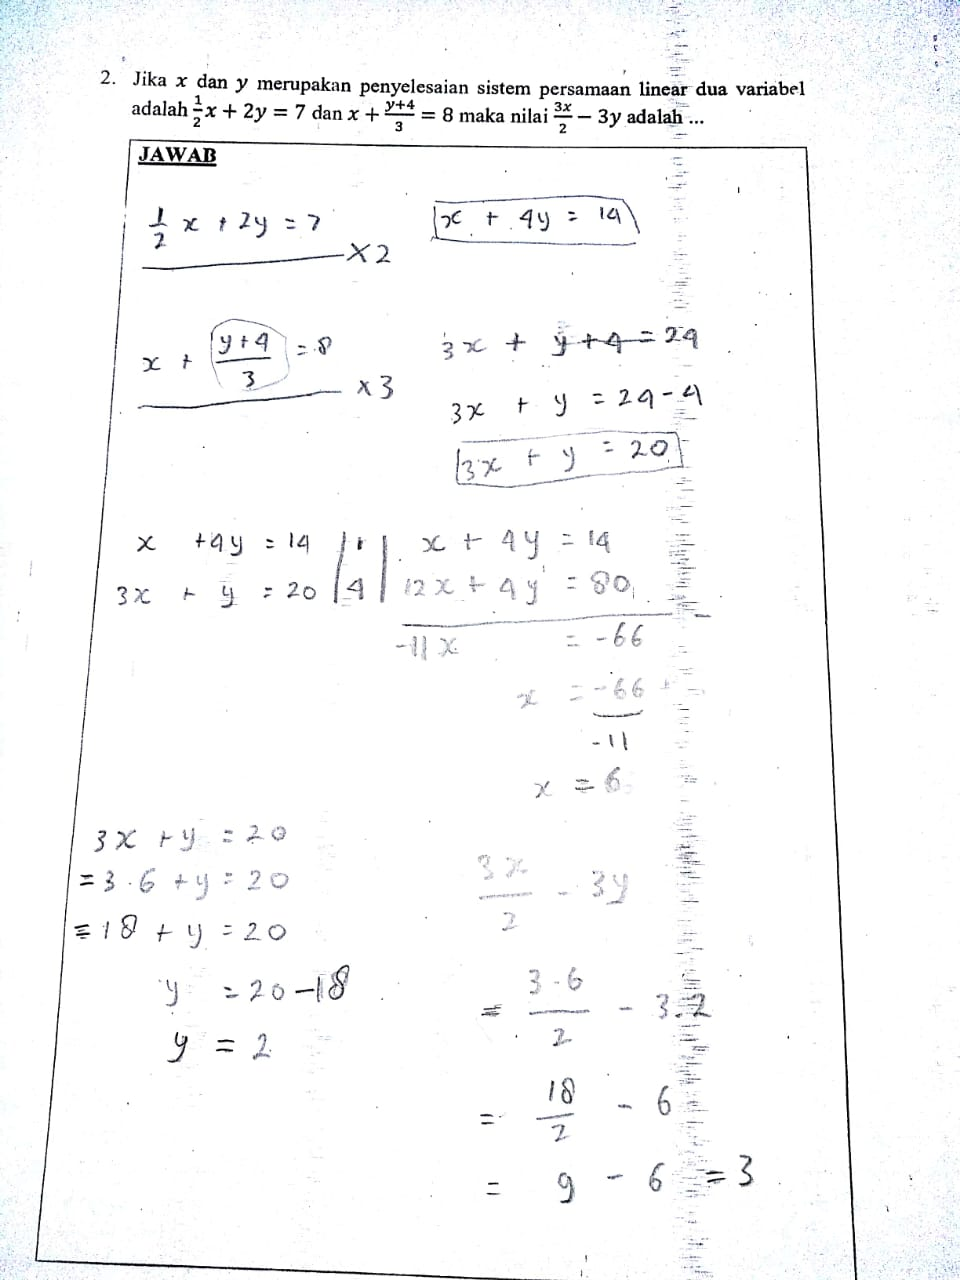 2. Jika x dan y merupakan penyelesaian sistem persamaan linear dua variabel
adalah 1/2 x + 2y = 7 dan x + (y+4)/3 = 8 maka nilai 3x/2 − 3y adalah ...
JAWAB
1/2 x + 2y = 7
×2
x + 4y = 14
x + (y+4)/3 = 8
×3
3x + y + 4 = 24
3x + y = 24 - 4
3x + y = 20
x + 4y = 14 | 1 | x + 4y = 14
3x + y = 20 | 4 | 12x + 4y = 80 -
-11x = -66
x = -66/-11
x = 6
3x + y = 20
= 3 . 6 + y = 20
= 18 + y = 20
y = 20 - 18
y = 2
3x/2 - 3y
= 3 . 6/2 - 3.2
= 18/2 - 6
= 9 - 6 = 3